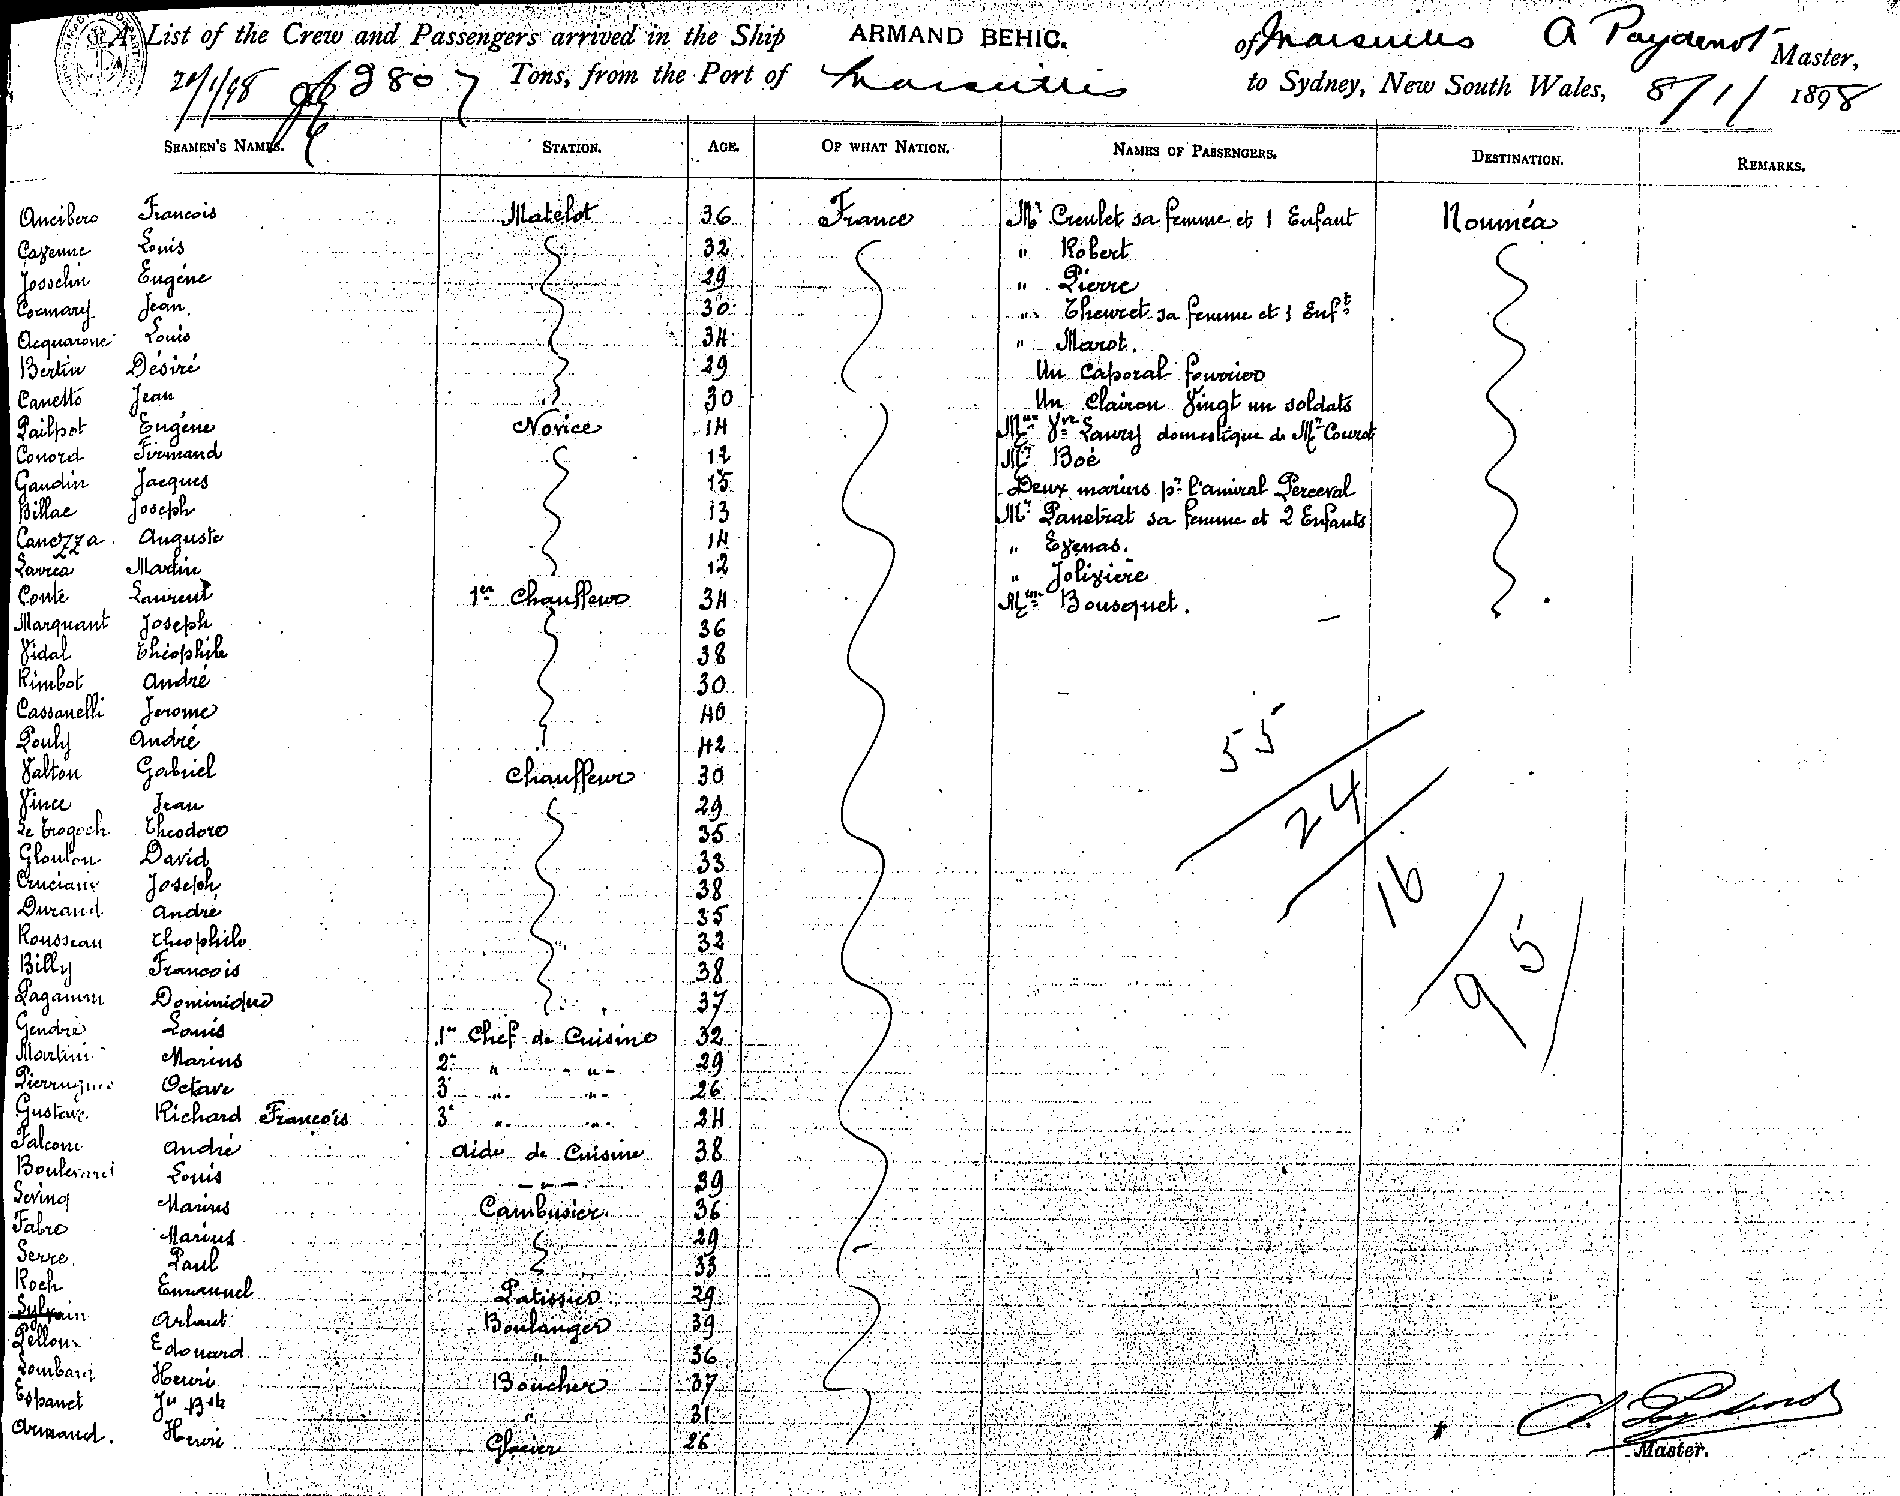 A List of the Crew and Passengers arrived in the Ship ARMAND BEHIC. of Marseilles A Paydenot Master,
20/1/98 3807 Tons, from the Port of Marseilles to Sydney, New South Wales, 8/1/ 1898
SEAMEN'S NAMES. STATION. AGE. OF WHAT NATION. NAMES OF PASSENGERS. DESTINATION. REMARKS.
Ancibero Francois Matelot 36 France Mr Creulet sa femme et 1 Enfant Nouméa
Cayenne Louis 32 " Robert
Josselin Eugéne 29 " Pierre
Cormary Jean 30 " Theuret sa femme et 1 Enft
Acquarone Louis 34 " Marot.
Bertin Désiré 29 Un Caporal fourrier
Canetto Jean 30 Un Clairon Vingt un soldats
Pailpot Eugéne Novice 14 Mme Vve Laury domestique de Mr Courot
Conord Firmand 12 Mr Boé
Gaudin Jacques 15 Deux marins pr l'amiral Perceval
Billac Joseph 13 Mr Panetrat sa femme et 2 Enfants
Canezza Auguste 14 " Eyenas.
Larrea Martin 12 " Joliviere
Conte Laurent 1er Chauffeur 34 Mme Bousquet.
Marquant Joseph 36
Vidal Théophile 38
Rimbot André 30
Cassanelli Jerome 40
Pouly André 42
Valton Gabriel Chauffeur 30
Vince Jean 29
Le Trogoch Theodore 35
Glouton David 33
Cruciani Joseph 38
Durand André 35
Rousseau Theophile 32
Billy Francois 38
Paganini Dominique 37
Gendre Louis 1er Chef de Cuisine 32
Martini Marius 2e " " 29
Octave 3e " " 26
Gustave Richard Francois 3e " " 24
Falcone André Aide de Cuisine 38
Boulevard Louis " 39
Seving Marius Cambusier 36
Fabre Marius 29
Serre Paul 33
Roch Emmanuel Patissier 29
Sylvain Arbaut Boulanger 39
Pelloux Edouard " 36
Lombard Henri Boucher 37
Espanet Jn Bte " 31
Armand. Henri Glacier 26
55
24
16
95
A. Paydenot
Master.